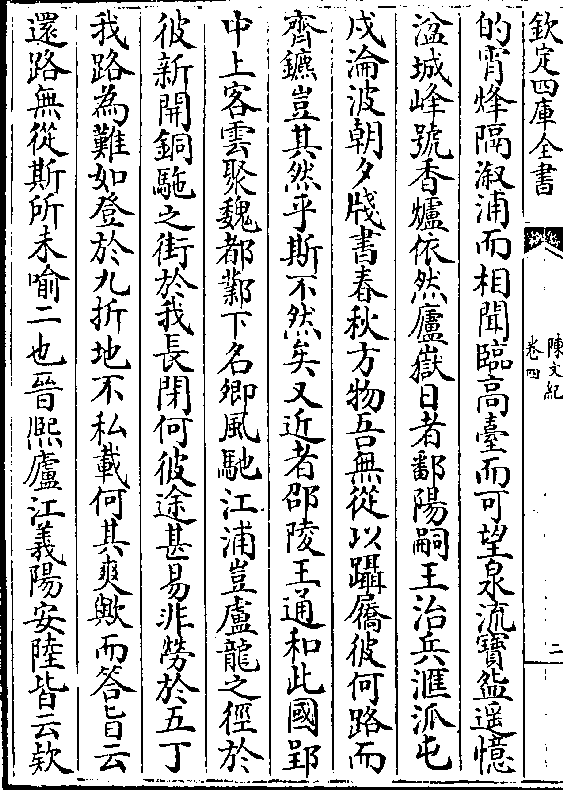 欽定四庫全書
陳文紀
卷四
二
的宵烽隔溆浦而相聞臨高臺而可望泉流寶盌遥憶
湓城峰號香爐依然廬嶽日者鄱陽嗣王治兵滙派屯
戍淪波朝夕牋書春秋方物吾無從以躡屩彼何路而
齊鑣豈其然乎斯不然矣又近者邵陵王通和此國郢
中上客雲聚魏都鄴下名卿風馳江浦豈盧龍之徑於
彼新開銅駞之街於我長閉何彼途甚易非勞於五丁
我路為難如登於九折地不私載何其爽歟而答㫖云
還路無從斯所未喻二也晉熙廬江義陽安陸皆云欵